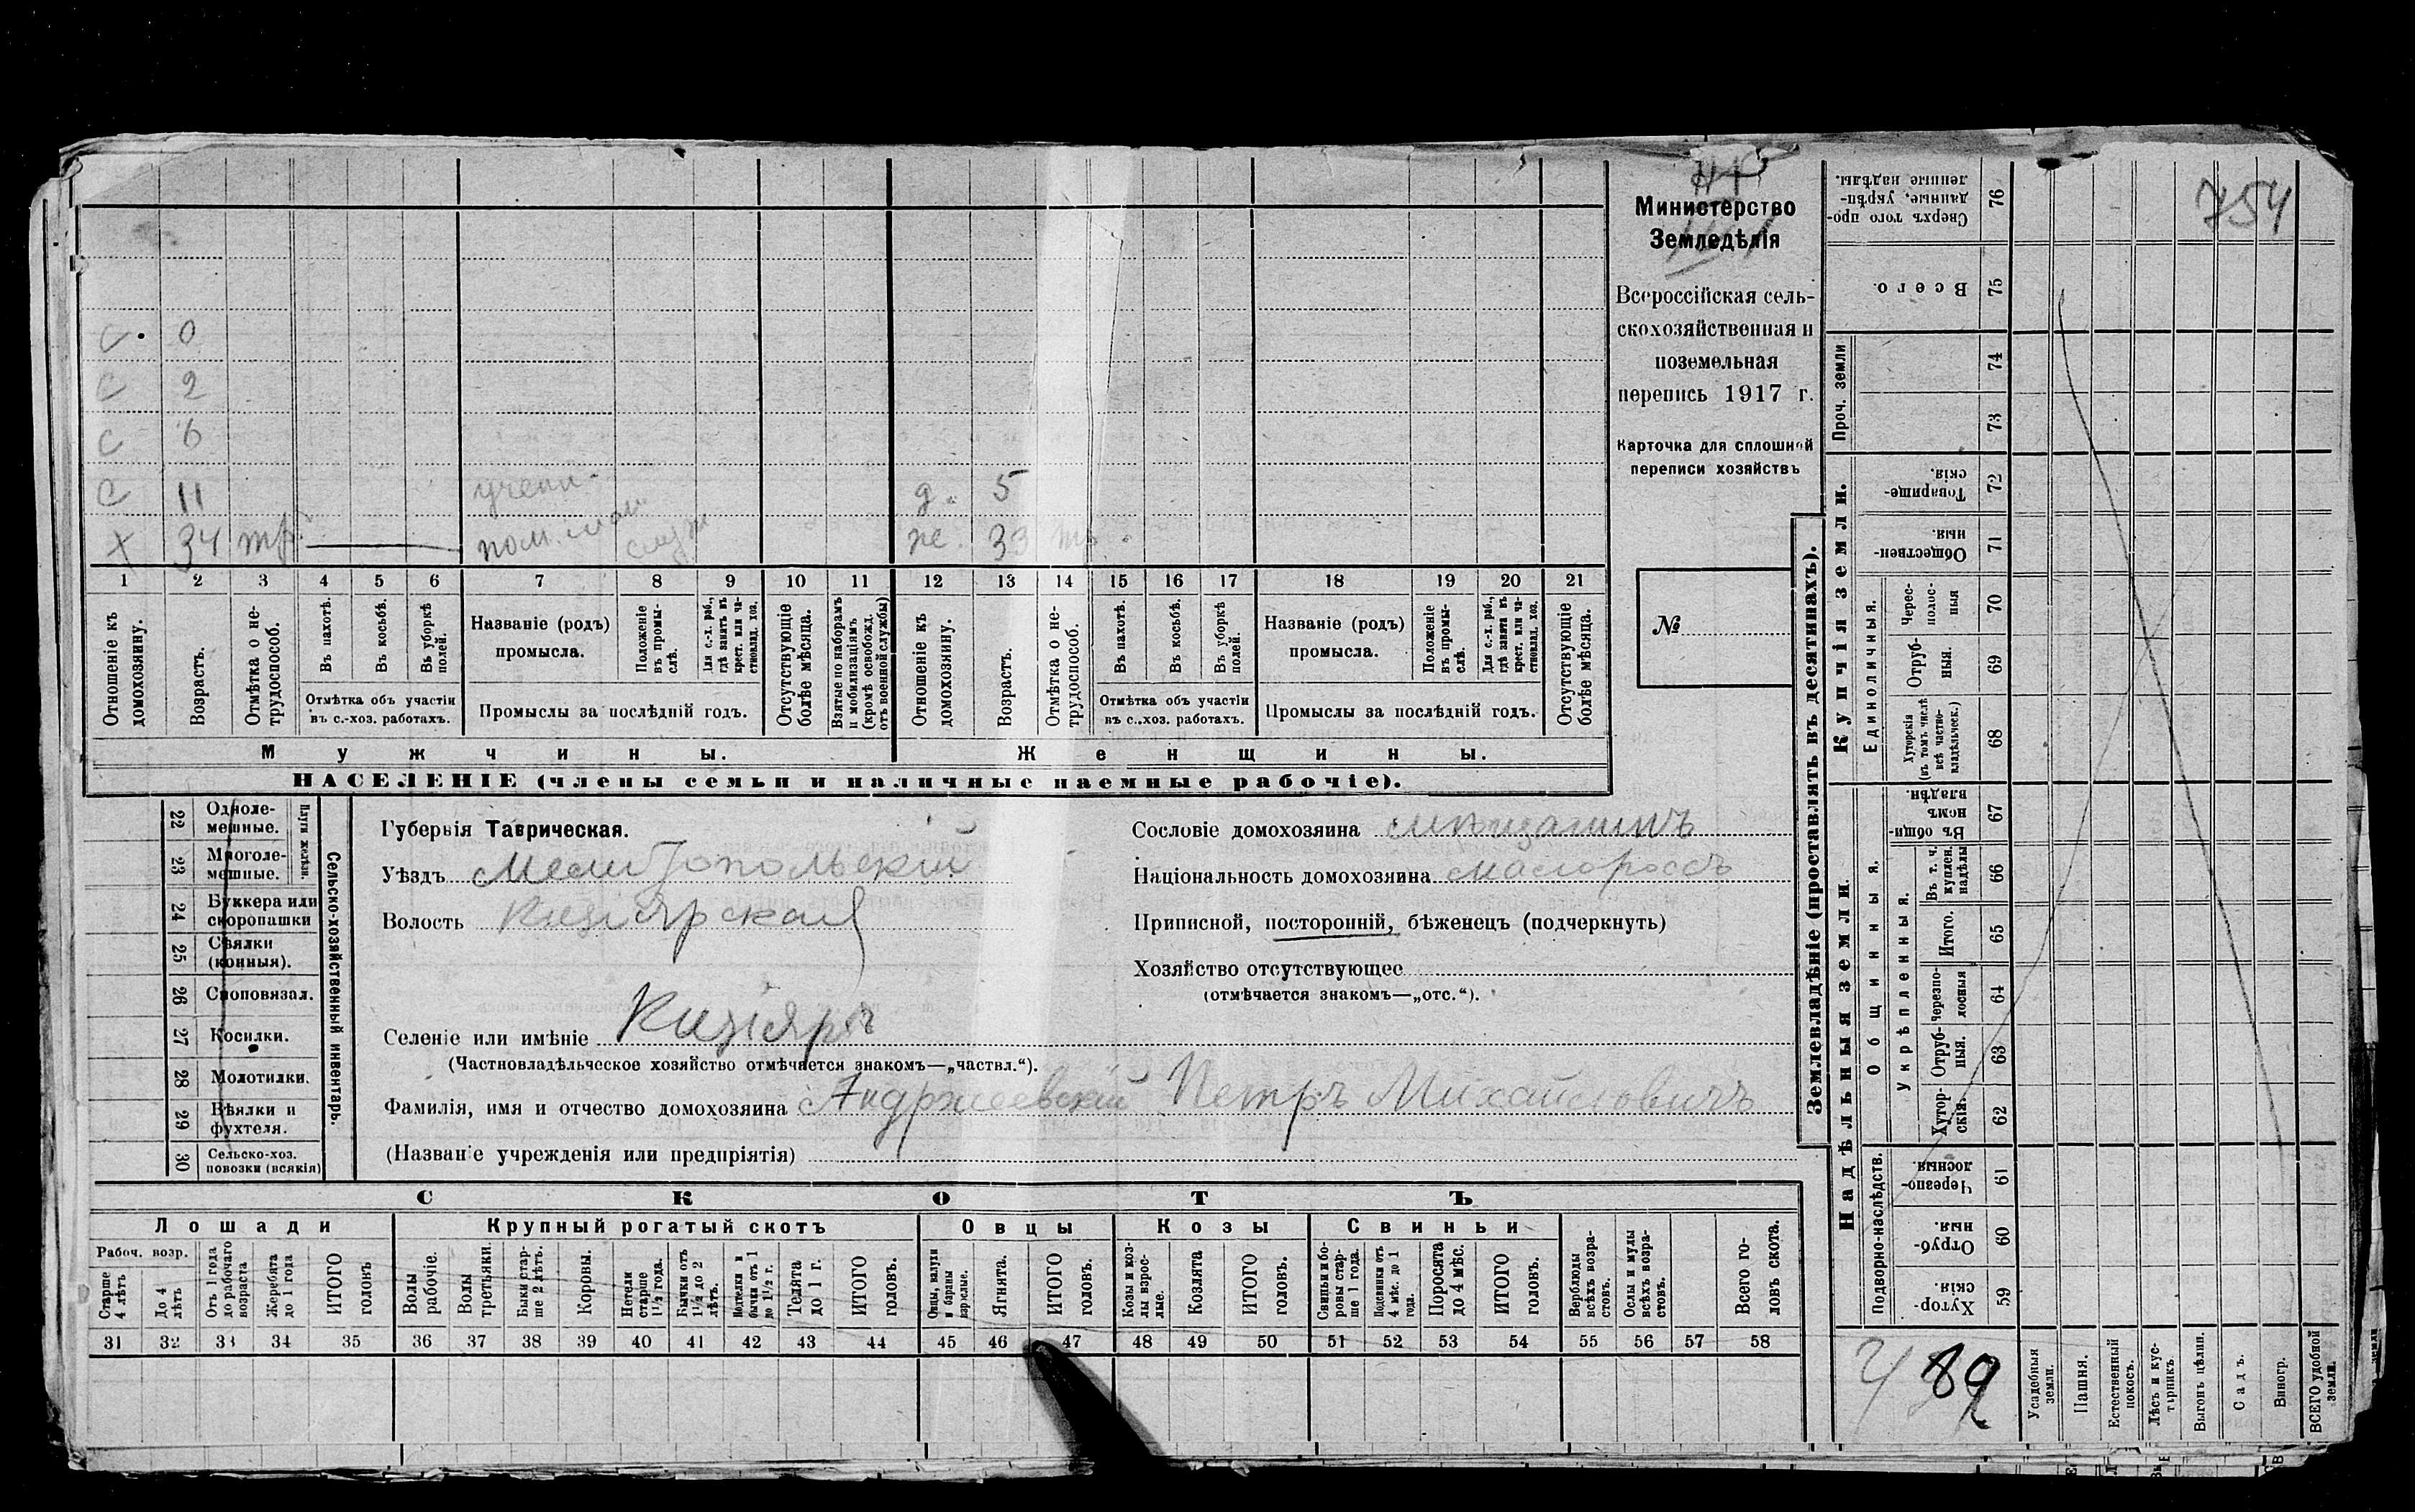 754
Министерство
Земледѣлія
Всероссійская сель-
скохозяйственная и
поземельная
перепись 1917 г.
Карточка для сплошной
переписи хозяйствъ
№
с. 0
с 2
с 6
с 11 д. 5
х 34 же. 33
1 2 3 4 5 6 7 8 9 10 11 12 13 14 15 16 17 18 19 20 21
Отношеніе къ домохозяину.
Возрастъ.
Отмѣтка о не-трудоспособ.
Въ пахотѣ.
Въ косьбѣ.
Въ уборкѣ полей.
Отмѣтка объ участіи
въ с.-хоз. работахъ.
Названіе (родъ)
промысла.
Положеніе въ промы-слѣ.
Для с.-х. раб., гдѣ занятъ въ крест. или ча-стновлад. хоз.
Промыслы за послѣдній годъ.
Отсутствующіе болѣе мѣсяца.
Взятые по наборамъ и мобилизаціямъ (кромѣ освобожд. отъ военной службы)
Отношеніе къ домохозяину.
Возрастъ.
Отмѣтка о не-трудоспособ.
Въ пахотѣ.
Въ косьбѣ.
Въ уборкѣ полей.
Отмѣтка объ участіи
въ с..хоз. работахъ.
Названіе (родъ)
промысла.
Положеніе въ промы-слѣ.
Для с.-х. раб., гдѣ занята въ крест. или ча-стновлад. хоз.
Промыслы за послѣдній годъ.
Отсутствующіе болѣе мѣсяца.
Мужчины.
Женщины.
НАСЕЛЕНІЕ (члены семьи и наличные наемные рабочіе).
Сельско-хозяйственный инвентарь.
22 Одноле-мешные.
23 Многоле-мешные.
24 Буккера или скоропашки
25 Сѣялки (конныя).
26 Сноповязал.
27 Косилки.
28 Молотилки.
29 Вѣялки и фухтеля.
30 Сельско-хоз. повозки (всякія)
Губернія Таврическая.
Уѣздъ Мелитопольскій
Волость Кизіярская
Селеніе или имѣніе Кизіяръ
(Частновладѣльческое хозяйство отмѣчается знакомъ—„частвл.“).
Фамилія, имя и отчество домохозяина Андржеевскій Петръ Михайловичъ
(Названіе учрежденія или предпріятія)
Сословіе домохозяина мѣщанинъ
Національность домохозяина малороссъ
Приписной, посторонній, бѣженецъ (подчеркнуть)
Хозяйство отсутствующее
(отмѣчается знакомъ—„отс.“).
СКОТЪ
Лошади
Крупный рогатый скотъ
Овцы
Козы
Свиньи
Рабоч. возр.
Старше 4 лѣтъ
До 4 лѣтъ
Отъ 1 года до рабочаго возраста
Жеребята до 1 года
ИТОГО головъ
Волы рабочіе.
Волы третьяки.
Быки стар-ше 2 лѣтъ.
Коровы.
Нетели старше 1½ года.
Бычки отъ 1½ до 2 лѣтъ.
Подтелки и бычки отъ 1 до 1½ г.
Телята до 1 г.
ИТОГО головъ.
Овцы, валухи и бараны взрослые.
Ягнята.
ИТОГО головъ.
Козы и коз-лы взрос-лые.
Козлята
ИТОГО головъ.
Свиньи и бо-ровы стар-ше 1 года.
Подсвинки отъ 4 мѣс. до 1 года.
Поросята до 4 мѣс.
ИТОГО головъ.
Верблюды всѣхъ возра-стовъ.
Ослы и мулы всѣхъ возра-стовъ.
Всего го-ловъ скота.
31 32 33 34 35 36 37 38 39 40 41 42 43 44 45 46 47 48 49 50 51 52 53 54 55 56 57 58
Землевладѣніе (проставлять въ десятинахъ).
76 Сверхъ того про-данные, укрѣп-ленные надѣлы.
75 Всего.
Проч. земли
74
73
Купчія земли.
72 Товарище-скія.
71 Обществен-ныя.
Единоличныя.
70 Черес-полос-ныя
69 Отруб-ныя.
68 Хуторскія (въ томъ числѣ всѣ частно-владѣльческ.)
Надѣльныя земли.
Общинныя.
67 Въ общи-номъ владѣн.
Укрѣпленныя.
66 Въ т. ч. куплен. надѣлы
65 Итого.
64 Черезпо-лосныя
63 Отруб-ныя.
62 Хутор-скія.
Подворно-наслѣдств.
61 Черезпо-лосныя.
60 Отруб-ныя.
59 Хутор-скія.
89
Усадебныя земли.
Пашня.
Естественный покосъ.
Лѣсъ и кус-тарникъ.
Выгонъ цѣлин.
Садъ.
Виногр.
ВСЕГО удобной земли.